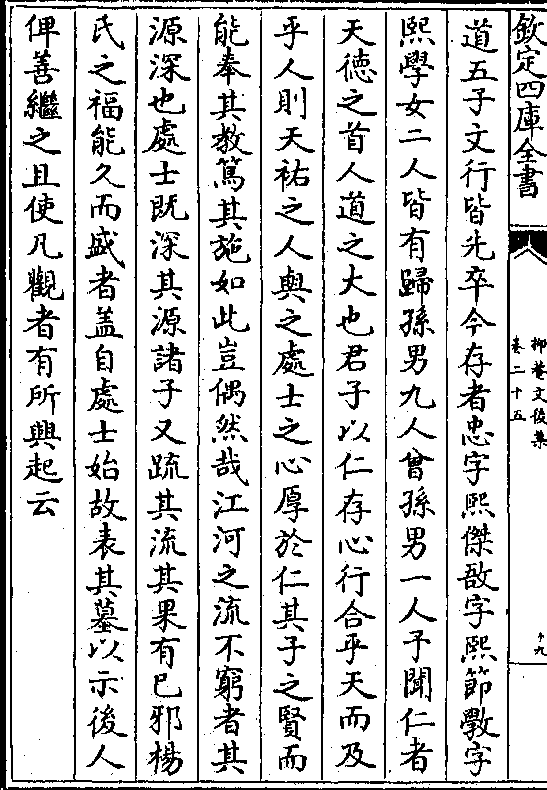 欽定四庫全書
抑菴文後集
卷二十五
十九
道五子文行皆先卒今存者忠字熙傑敔字熙節斆字
熙學女二人皆有歸孫男九人曾孫男一人予聞仁者
天德之首人道之大也君子以仁存心行合乎天而及
乎人則天祐之人與之處士之心厚於仁其子之賢而
能奉其教篤其施如此豈偶然哉江河之流不窮者其
源深也處士既深其源諸子又疏其流其果有已邪楊
氏之福能久而盛者蓋自處士始故表其墓以示後人
俾善繼之且使凡觀者有所興起云